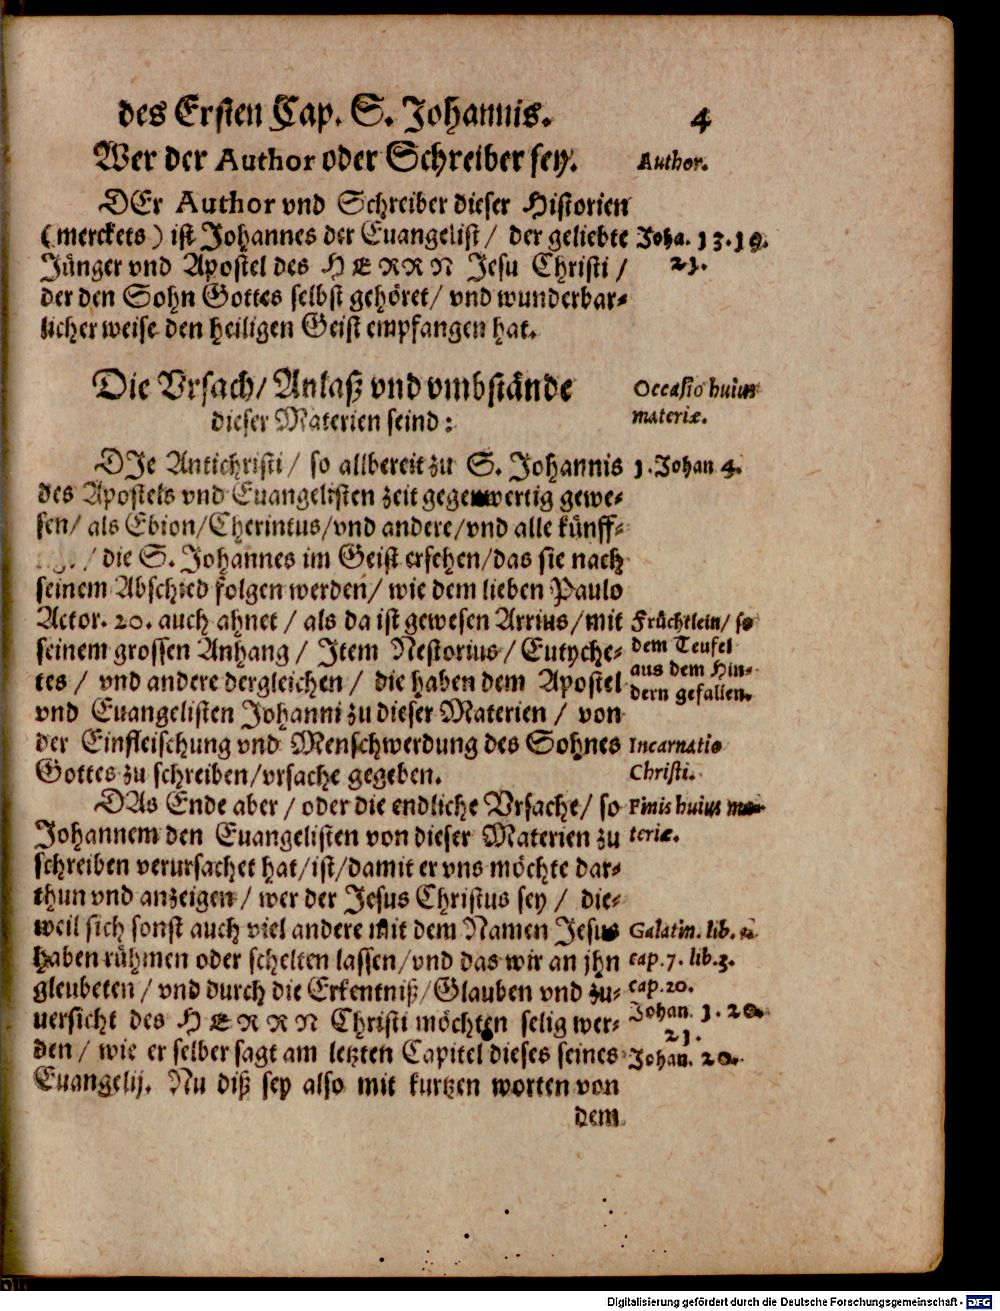 des Ersten Cap. S. Johannis. 4
Wer der Author oder Schreiber sey. Author.
DEr Author vnd Schreiber dieser Historien
(merckets) ist Johannes der Euangelist/ der geliebte Joha. 13.19.
Jünger vnd Apostel des HERRN Jesu Christi / 21.
der den Sohn Gottes selbst gehöret/ vnd wunderbar-
licher weise den heiligen Geist empfangen hat.
Die Vrsach/ Anlaß vnd vmbstände Occasio huius
dieser Materien seind: materiæ.
DIe Antichristi/ so allbereit zu S. Johannis 1. Johan 4.
des Apostels vnd Euangelisten zeit gegenwertig gewe-
sen/ als Ebion/Cherintus/vnd andere/vnd alle künff-
/ die S. Johannes im Geist ersehen/das sie nach
seinem Abschied folgen werden/ wie dem lieben Paulo
Actor. 20. auch ahnet / als da ist gewesen Arrius/mit Früchtlein/ so
seinem grossen Anhang / Item Nestorius/ Eutyche- dem Teufel
tes / vnd andere dergleichen / die haben dem Apostel aus dem Hin-
dern gefallen.
vnd Euangelisten Johanni zu dieser Materien / von
der Einfleischung vnd Menschwerdung des Sohnes Incarnatio
Gottes zu schreiben/vrsache gegeben. Christi.
DAs Ende aber / oder die endliche Vrsache/ so Finis huius ma-
Johannem den Euangelisten von dieser Materien zu teriæ.
schreiben verursachet hat/ist/damit er vns möchte dar-
thun vnd anzeigen/ wer der Jesus Christus sey / die-
weil sich sonst auch viel andere mit dem Namen Jesus Galatin. lib.
haben rühmen oder schelten lassen/vnd das wir an jhn cap.7. lib.3.
gleubeten / vnd durch die Erkentniß/Glauben vnd zu- cap.20.
uersicht des HERRN Christi möchten selig wer- Johan. 1. 20.
21.
den / wie er selber sagt am letzten Capitel dieses seines Johan. 20.
Euangelij. Nu diß sey also mit kurtzen worten von
dem
Digitalisierung gefördert durch die Deutsche Forschungsgemeinschaft - DFG